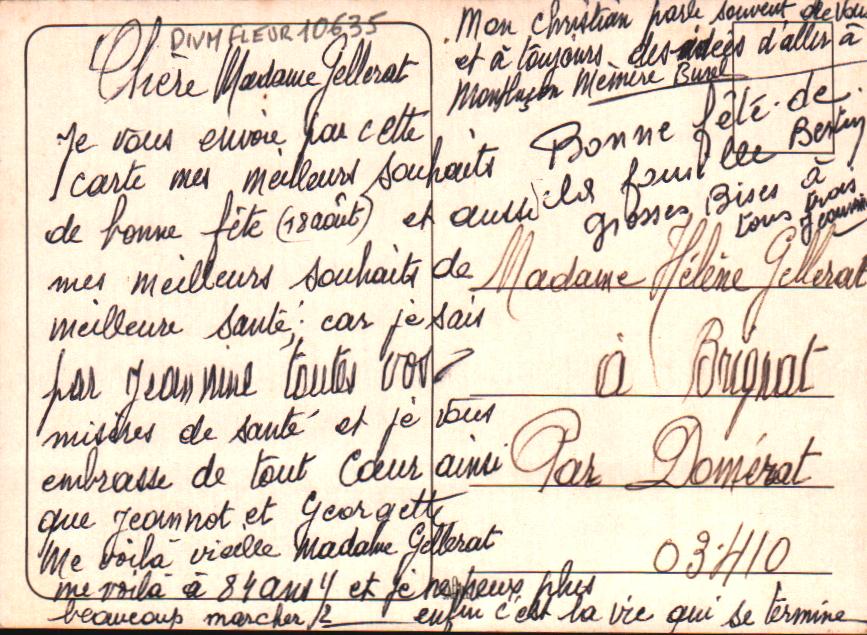 DIVM FLEUR 10635
Chère Madame Gellerat
Je vous envoie par cette
carte mes meilleurs souhaits
de bonne fête (18 août) et aussi
mes meilleurs souhaits de
meilleure santé; car je sais
par Jeannine toutes vos
misères de santé et je vous
embrasse de tout Cœur ainsi
que Jeannot et Georgette
Me voilà vieille Madame Gellerat
me voilà à 84 ans et je ne peux plus
beaucoup marcher enfin c'est la vie qui se termine
Mon christian parle souvent de vous
et à toujours des idées d'aller à
Montluçon Mémère Burel
Bonne fête de
la famille Bertin
grosses Bises à
tous trois
Jeannine
Madame Hélène Gellerat
à Brignat
Par Domérat
03410